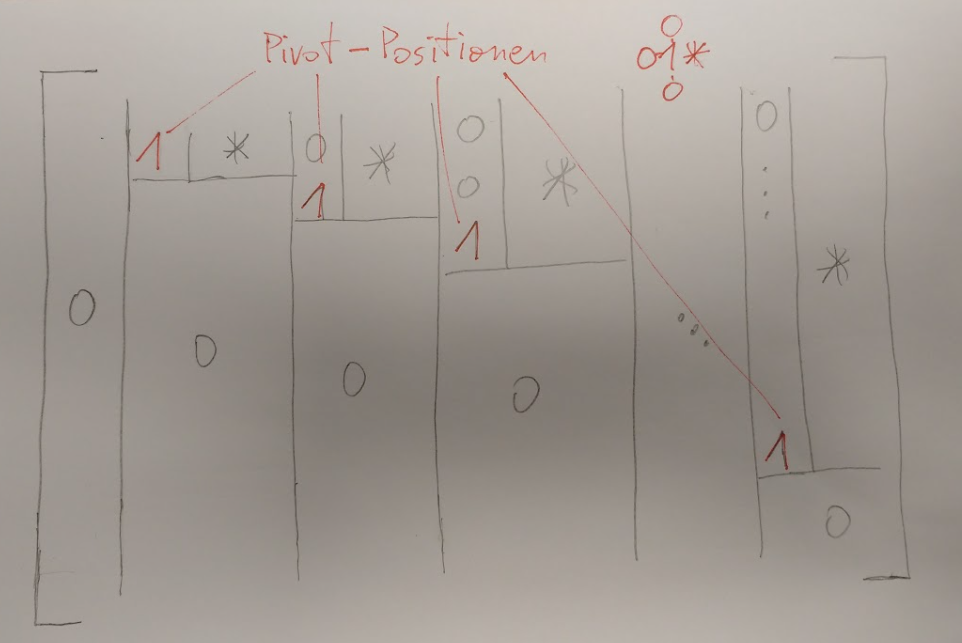 Pivot-Positionen
0
0 1 *
0
1 * 0 * 0 * 0
1 0
1
0 0 0 0 ... 1 *
0